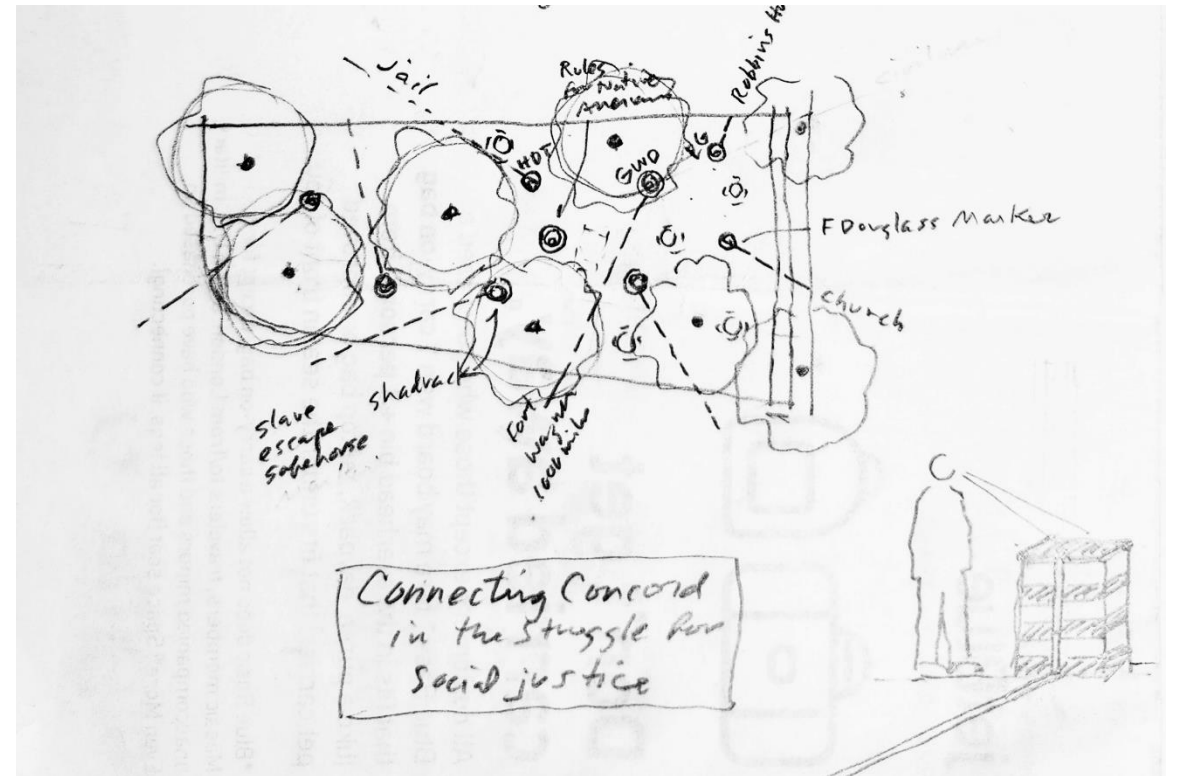 Jail
Rules
for Native
Americans
Robbins
HDT
GWD
F Douglass Marker
church
shadrack
slave
escape
safehouse
Fort
Wagner
1000 miles
Connecting Concord
in the Struggle for
Social justice